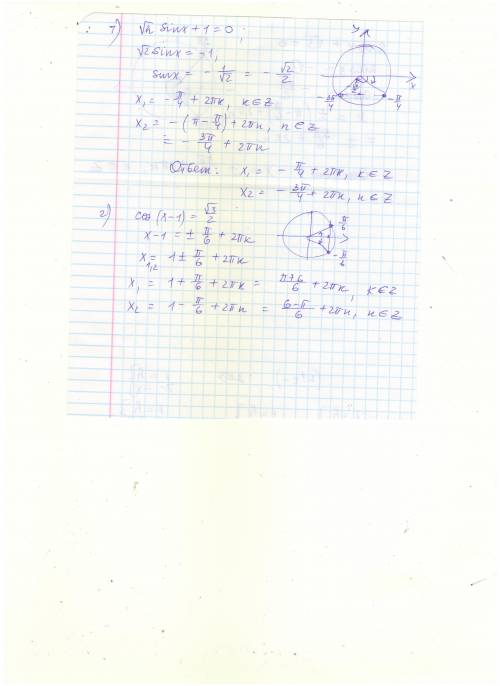 1) √2 sinx + 1 = 0 ;
√2 sinx = -1,
sinx = - 1/√2 = - √2/2
y
x
- 3π/4
- π/4
x₁ = - π/4 + 2πk, k∈Z
x₂ = - (π - π/4) + 2πn, n∈Z
= - 3π/4 + 2πn
Ответ: x₁ = - π/4 + 2πk, k∈Z
x₂ = - 3π/4 + 2πn, n∈Z
2) cos (x-1) = √3/2
π/6
- π/6
x-1 = ± π/6 + 2πk
x₁,₂ = 1 ± π/6 + 2πk
x₁ = 1 + π/6 + 2πk = π+6/6 + 2πk, k∈Z
x₂ = 1 - π/6 + 2πn = 6-π/6 + 2πn, n∈Z